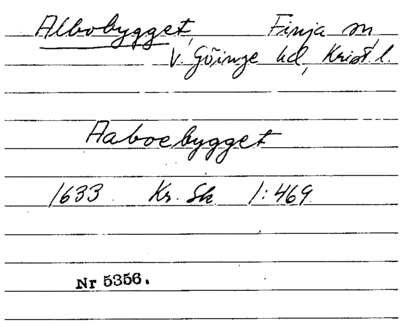 Albobygget, Finja sn,
V. Göinge hd, Krist. l.
Aaboebygget
1633 Kr. Sk 1:469
Nr 5356.